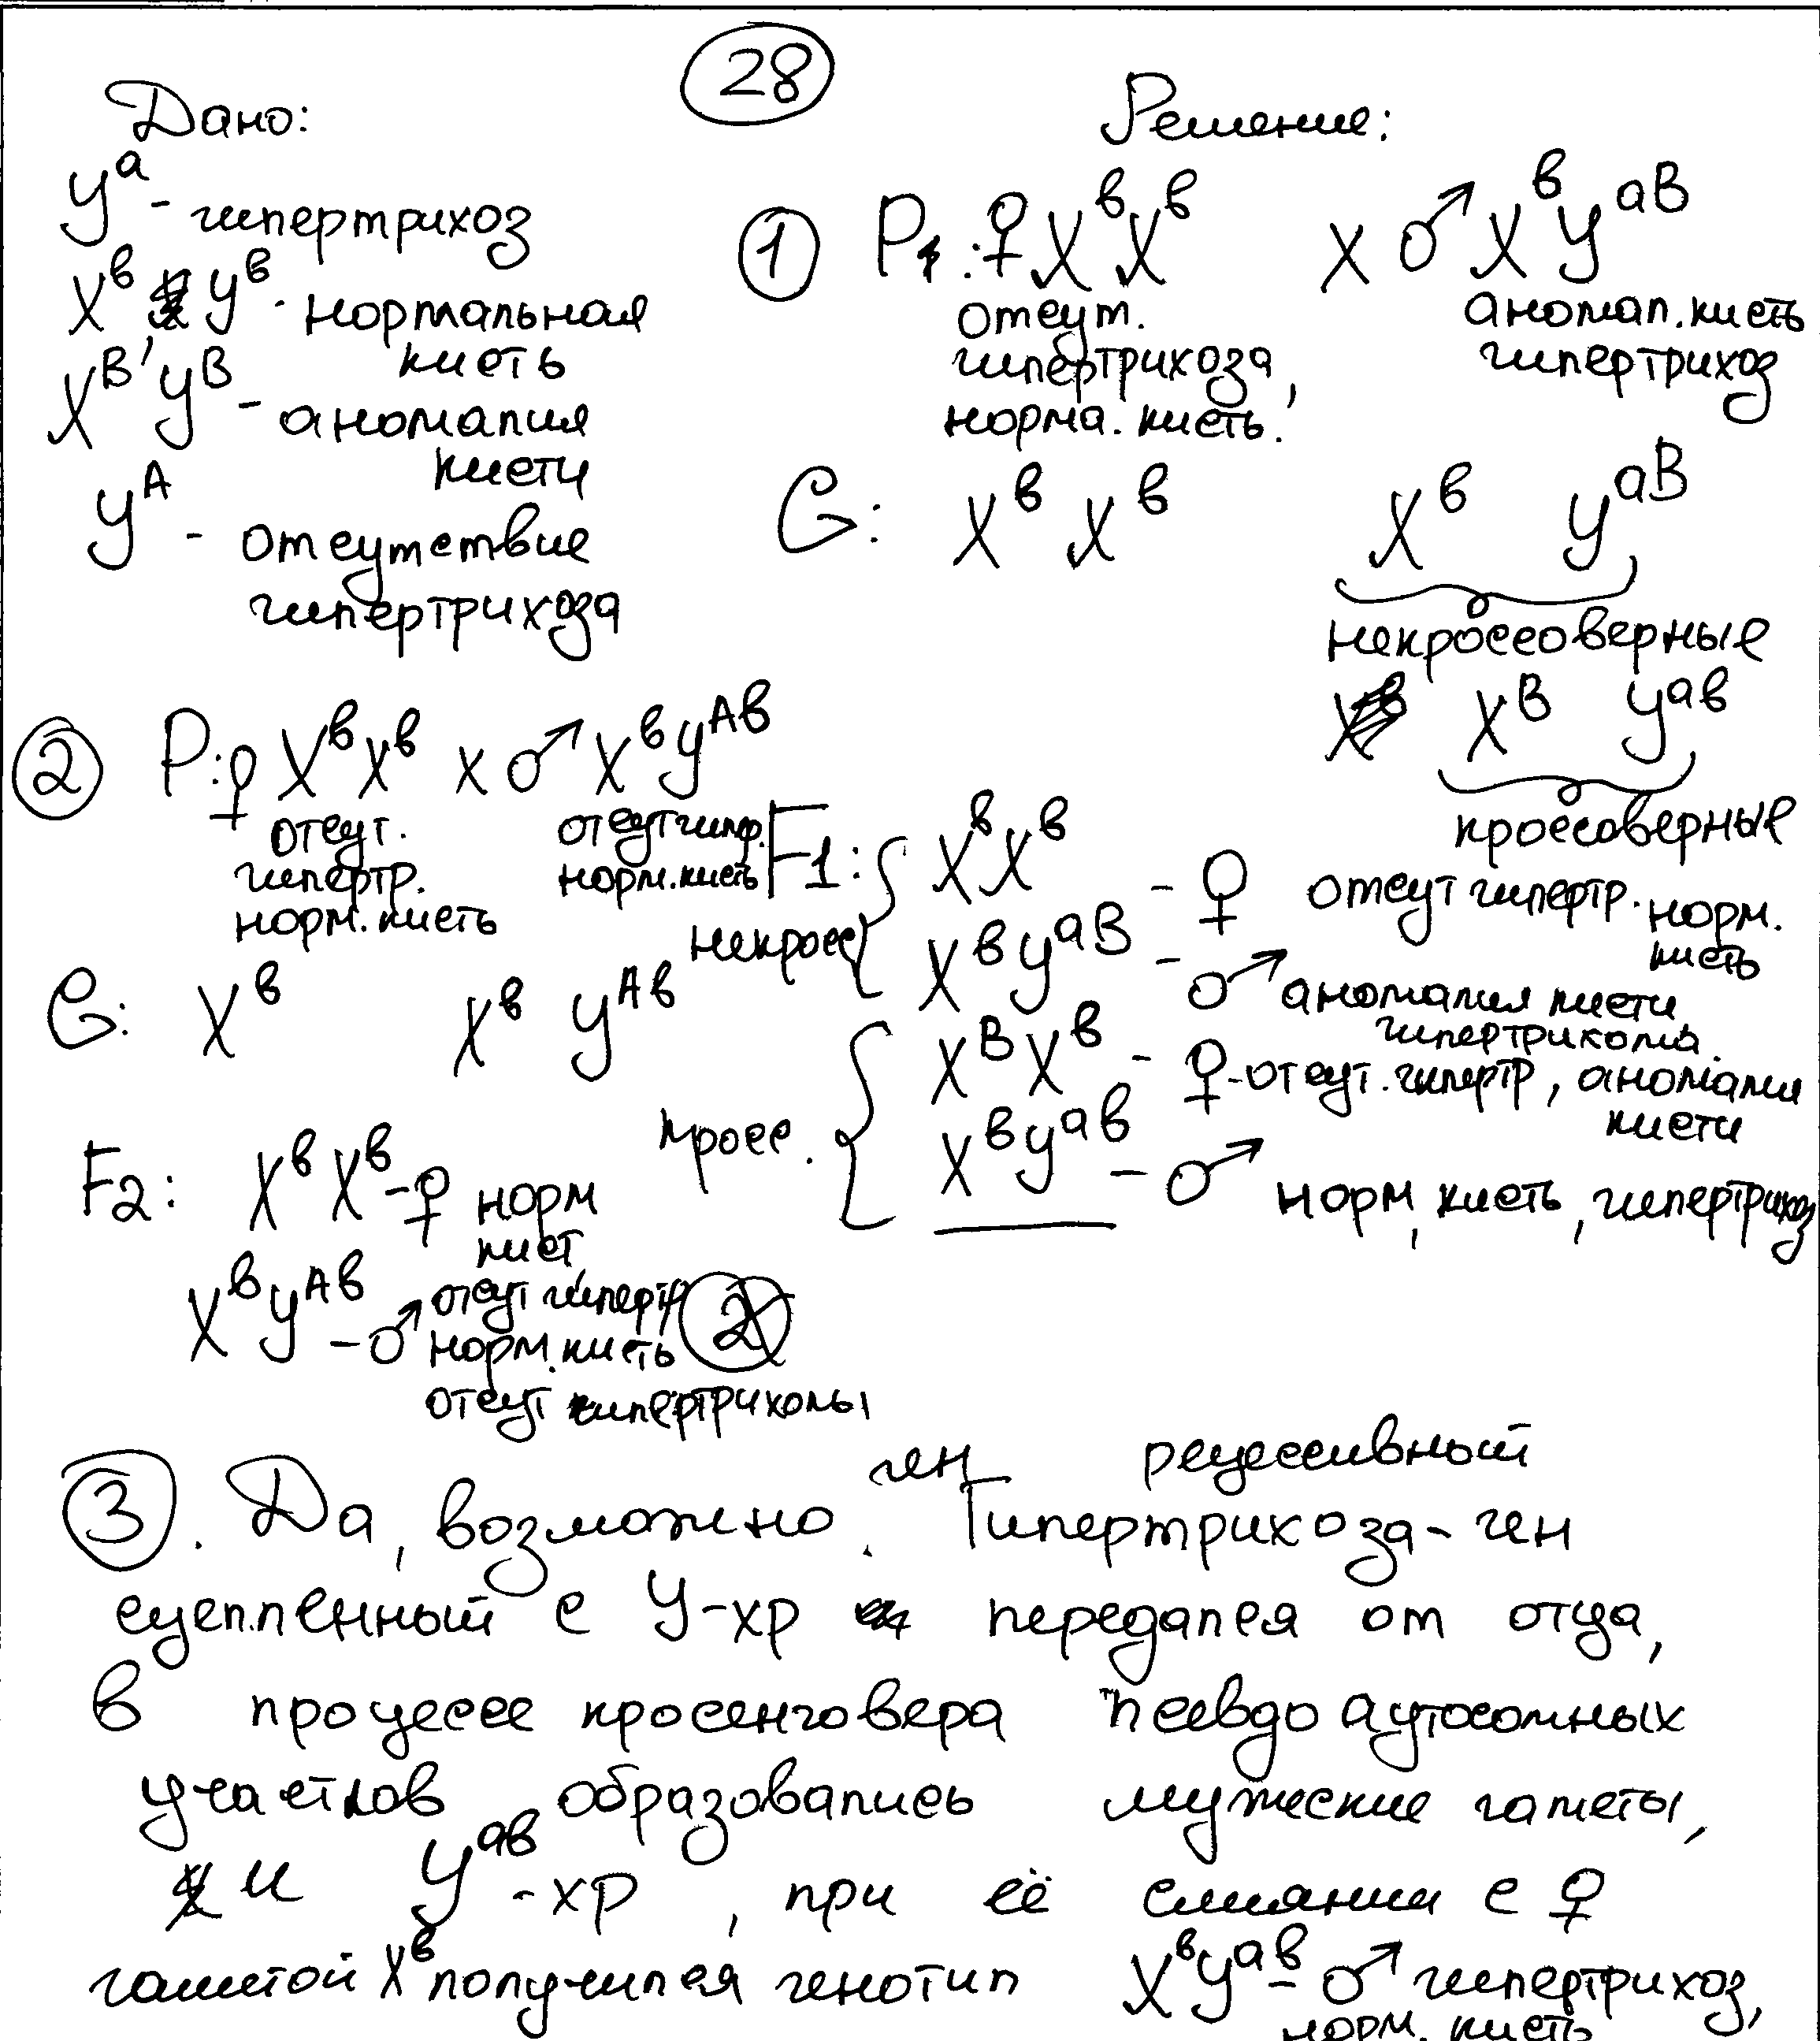 28
Дано:
yᵃ - гипертрихоз
Xᵇ, yᵇ - нормальная
кисть
Xᴮ yᴮ - аномалия
кисти
yᴬ - отсутствие
гипертрихоза
Решение:
① P1: ♀ XᵇXᵇ x ♂ Xᵇyᵃᴮ
отсут. аномал. кисть
гипертрихоза, гипертрихоз
норма. кисть.
G: Xᵇ Xᵇ Xᵇ yᵃᴮ
некроссоверные
Xᴮ yᵃᵇ
кроссоверные
F1: некросс { XᵇXᵇ - ♀ отсут гипертр. норм.
кисть
Xᵇyᵃᴮ - ♂ аномалия кисти
гипертрихома.
кросс. { XᴮXᵇ - ♀ - отсут. гипертр, аномалия
кисти
Xᵇyᵃᵇ - ♂ норм, кисть, гипертрихоз
② P: ♀ XᵇXᵇ x ♂ Xᵇyᴬᵇ
отсут. отсут гипер.
гипертр. норм. кисть
норм. кисть
G: Xᵇ Xᵇ yᴬᵇ
F2: XᵇXᵇ - ♀ норм
кист
отсут гипертр
Xᵇyᴬᵇ - ♂ норм. кисть
отсут гипертрихомы
③. Да, возможно. ген рецессивный
Гипертрихоза - ген
сцепленный с y-хр передался от отца,
в процессе кросенговера псевдоаутосомных
участков образовались мужские гаметы,
и yᵃᵇ - хр, при её слиянии с ♀
гаметой Xᵇ получился генотип Xᵇyᵃᵇ - ♂ гипертрихоз,
норм. кисть